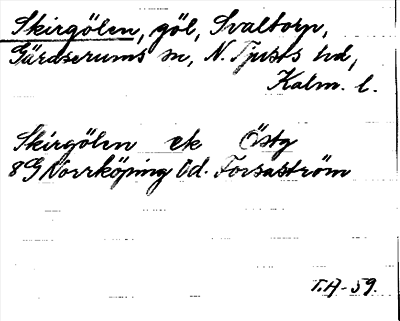 Skirgölen, göl, Svaltorp,
Gärdserums sn, N. Tjusts hd,
Kalm. l.
Skirgölen ek Östg
8G Norrköping Öd. Forsaström
T.A-59.